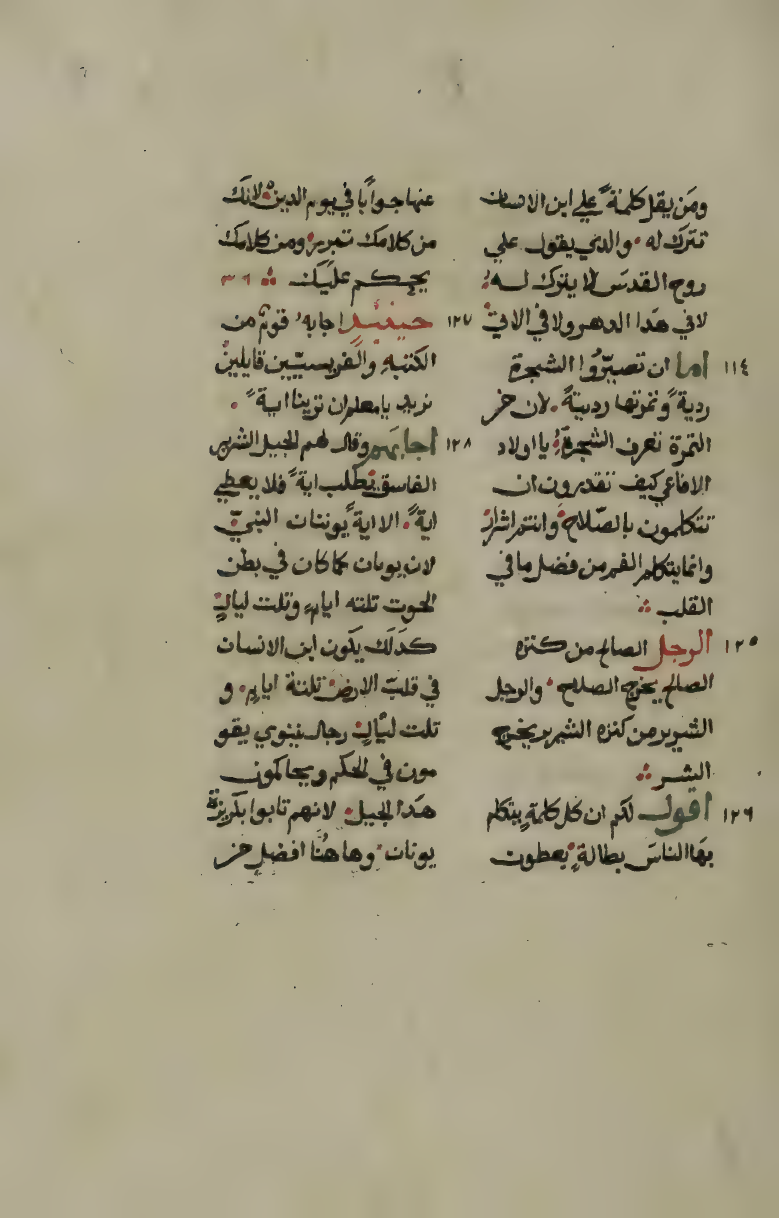 ومَن يقل كلمةً علي ابن الانسان
تترك له. والدي يقول علي
روح القدس لا يترك له
لا في هدا الدهر ولا في الاتي
١١٤ أما ان تصيّروا الشجرة
ردية وثمرتها رديةً. لان من
الثمرة تعرف الشجرة يا اولاد
الافاعي كيف تقدرون ان
تتكلمون بالصّلاح وانتم اشرار
وانما يتكلم الفم من فضل ما في
القلب
١٢٥ الرجل الصالح من كنزه
الصالح يخرج الصلاح والرجل
الشرير من كنزه الشرير يخرج
الشر
١٢٦ اقول لكم ان كل كلمةٍ يتكلم
بها الناس بطالةٍ يعطون
عنها جواباً في يوم الدين لانك
من كلامك تتبرر ومن كلامك
يحكم عليك ٣٦
١٢٧ حينئيدٍ اجابه قومٌ من
الكتبه والفريسيّين قايلين
نريد يا معلم ان ترينا ايةً.
١٢٨ اجابهم وقال لهم الجيل الشرير
الفاسق يطلب ايةً فلا يعطي
ايةً. الا اية يونان النبيّ
لان يونان كما كان في بطن
الحوت تلته ايامٍ وتلت ليالٍ
كدلك يكون ابن الانسان
في قلب الارض تلتة ايامٍ. و
تلت ليالٍ رجال نينوي يقو
مون في الحكم ويحاكمون
هدا الجيل. لانهم تابوا بكريزة
يونان وهاهنا افضل من